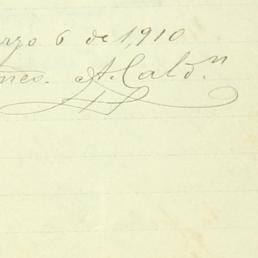 rzo 6 de 1,910
nes. A. Cald.n